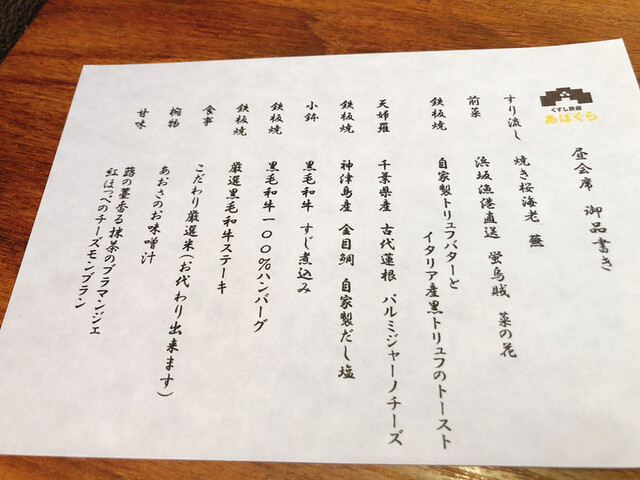 くずし鉄板
あばぐら
昼会席 御品書き
すり流し 焼き桜海老 蕪
前菜 浜坂漁港直送 蛍烏賊 菜の花
鉄板焼 自家製トリュフバターと
イタリア産黒トリュフのトースト
天婦羅 千葉県産 古代蓮根 パルミジャーノチーズ
鉄板焼 神津島産 金目鯛 自家製だし塩
小鉢 黒毛和牛 すじ煮込み
鉄板焼 黒毛和牛一００％ハンバーグ
鉄板焼 厳選黒毛和牛ステーキ
食事 こだわり厳選米(お代わり出来ます)
椀物 あおさのお味噌汁
甘味 蕗の薹香る抹茶のブラマンジェ
紅ほっぺのチーズモンブラン